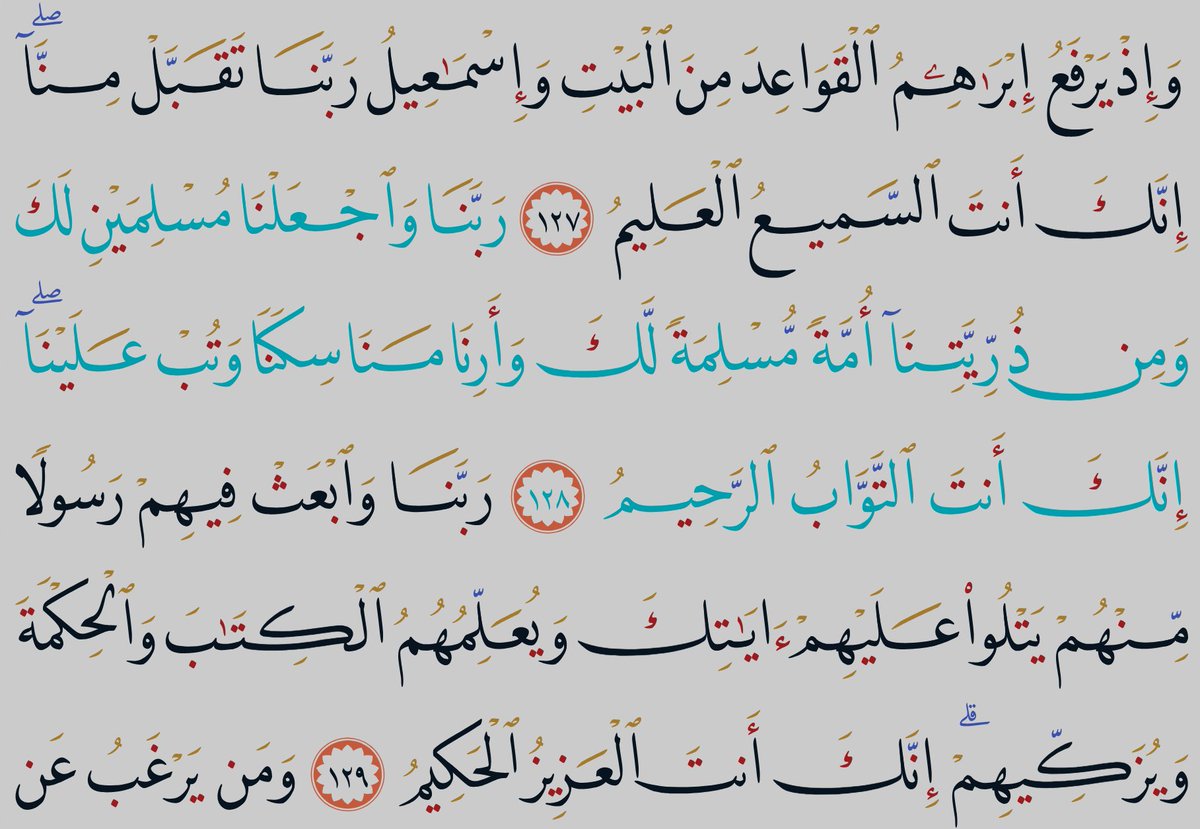 وَإِذْ يَرْفَعُ إِبْرَٰهِۦمُ ٱلْقَوَاعِدَ مِنَ ٱلْبَيْتِ وَإِسْمَٰعِيلُ رَبَّنَا تَقَبَّلْ مِنَّآۖ
إِنَّكَ أَنتَ ٱلسَّمِيعُ ٱلْعَلِيمُ ١٢٧ رَبَّنَا وَٱجْعَلْنَا مُسْلِمَيْنِ لَكَ
وَمِن ذُرِّيَّتِنَآ أُمَّةً مُّسْلِمَةً لَّكَ وَأَرِنَا مَنَاسِكَنَا وَتُبْ عَلَيْنَآۖ
إِنَّكَ أَنتَ ٱلتَّوَّابُ ٱلرَّحِيمُ ١٢٨ رَبَّنَا وَٱبْعَثْ فِيهِمْ رَسُولًا
مِّنْهُمْ يَتْلُوا۟ عَلَيْهِمْ ءَايَٰتِكَ وَيُعَلِّمُهُمُ ٱلْكِتَٰبَ وَٱلْحِكْمَةَ
وَيُزَكِّيهِمْۗ إِنَّكَ أَنتَ ٱلْعَزِيزُ ٱلْحَكِيمُ ١٢٩ وَمَن يَرْغَبُ عَن